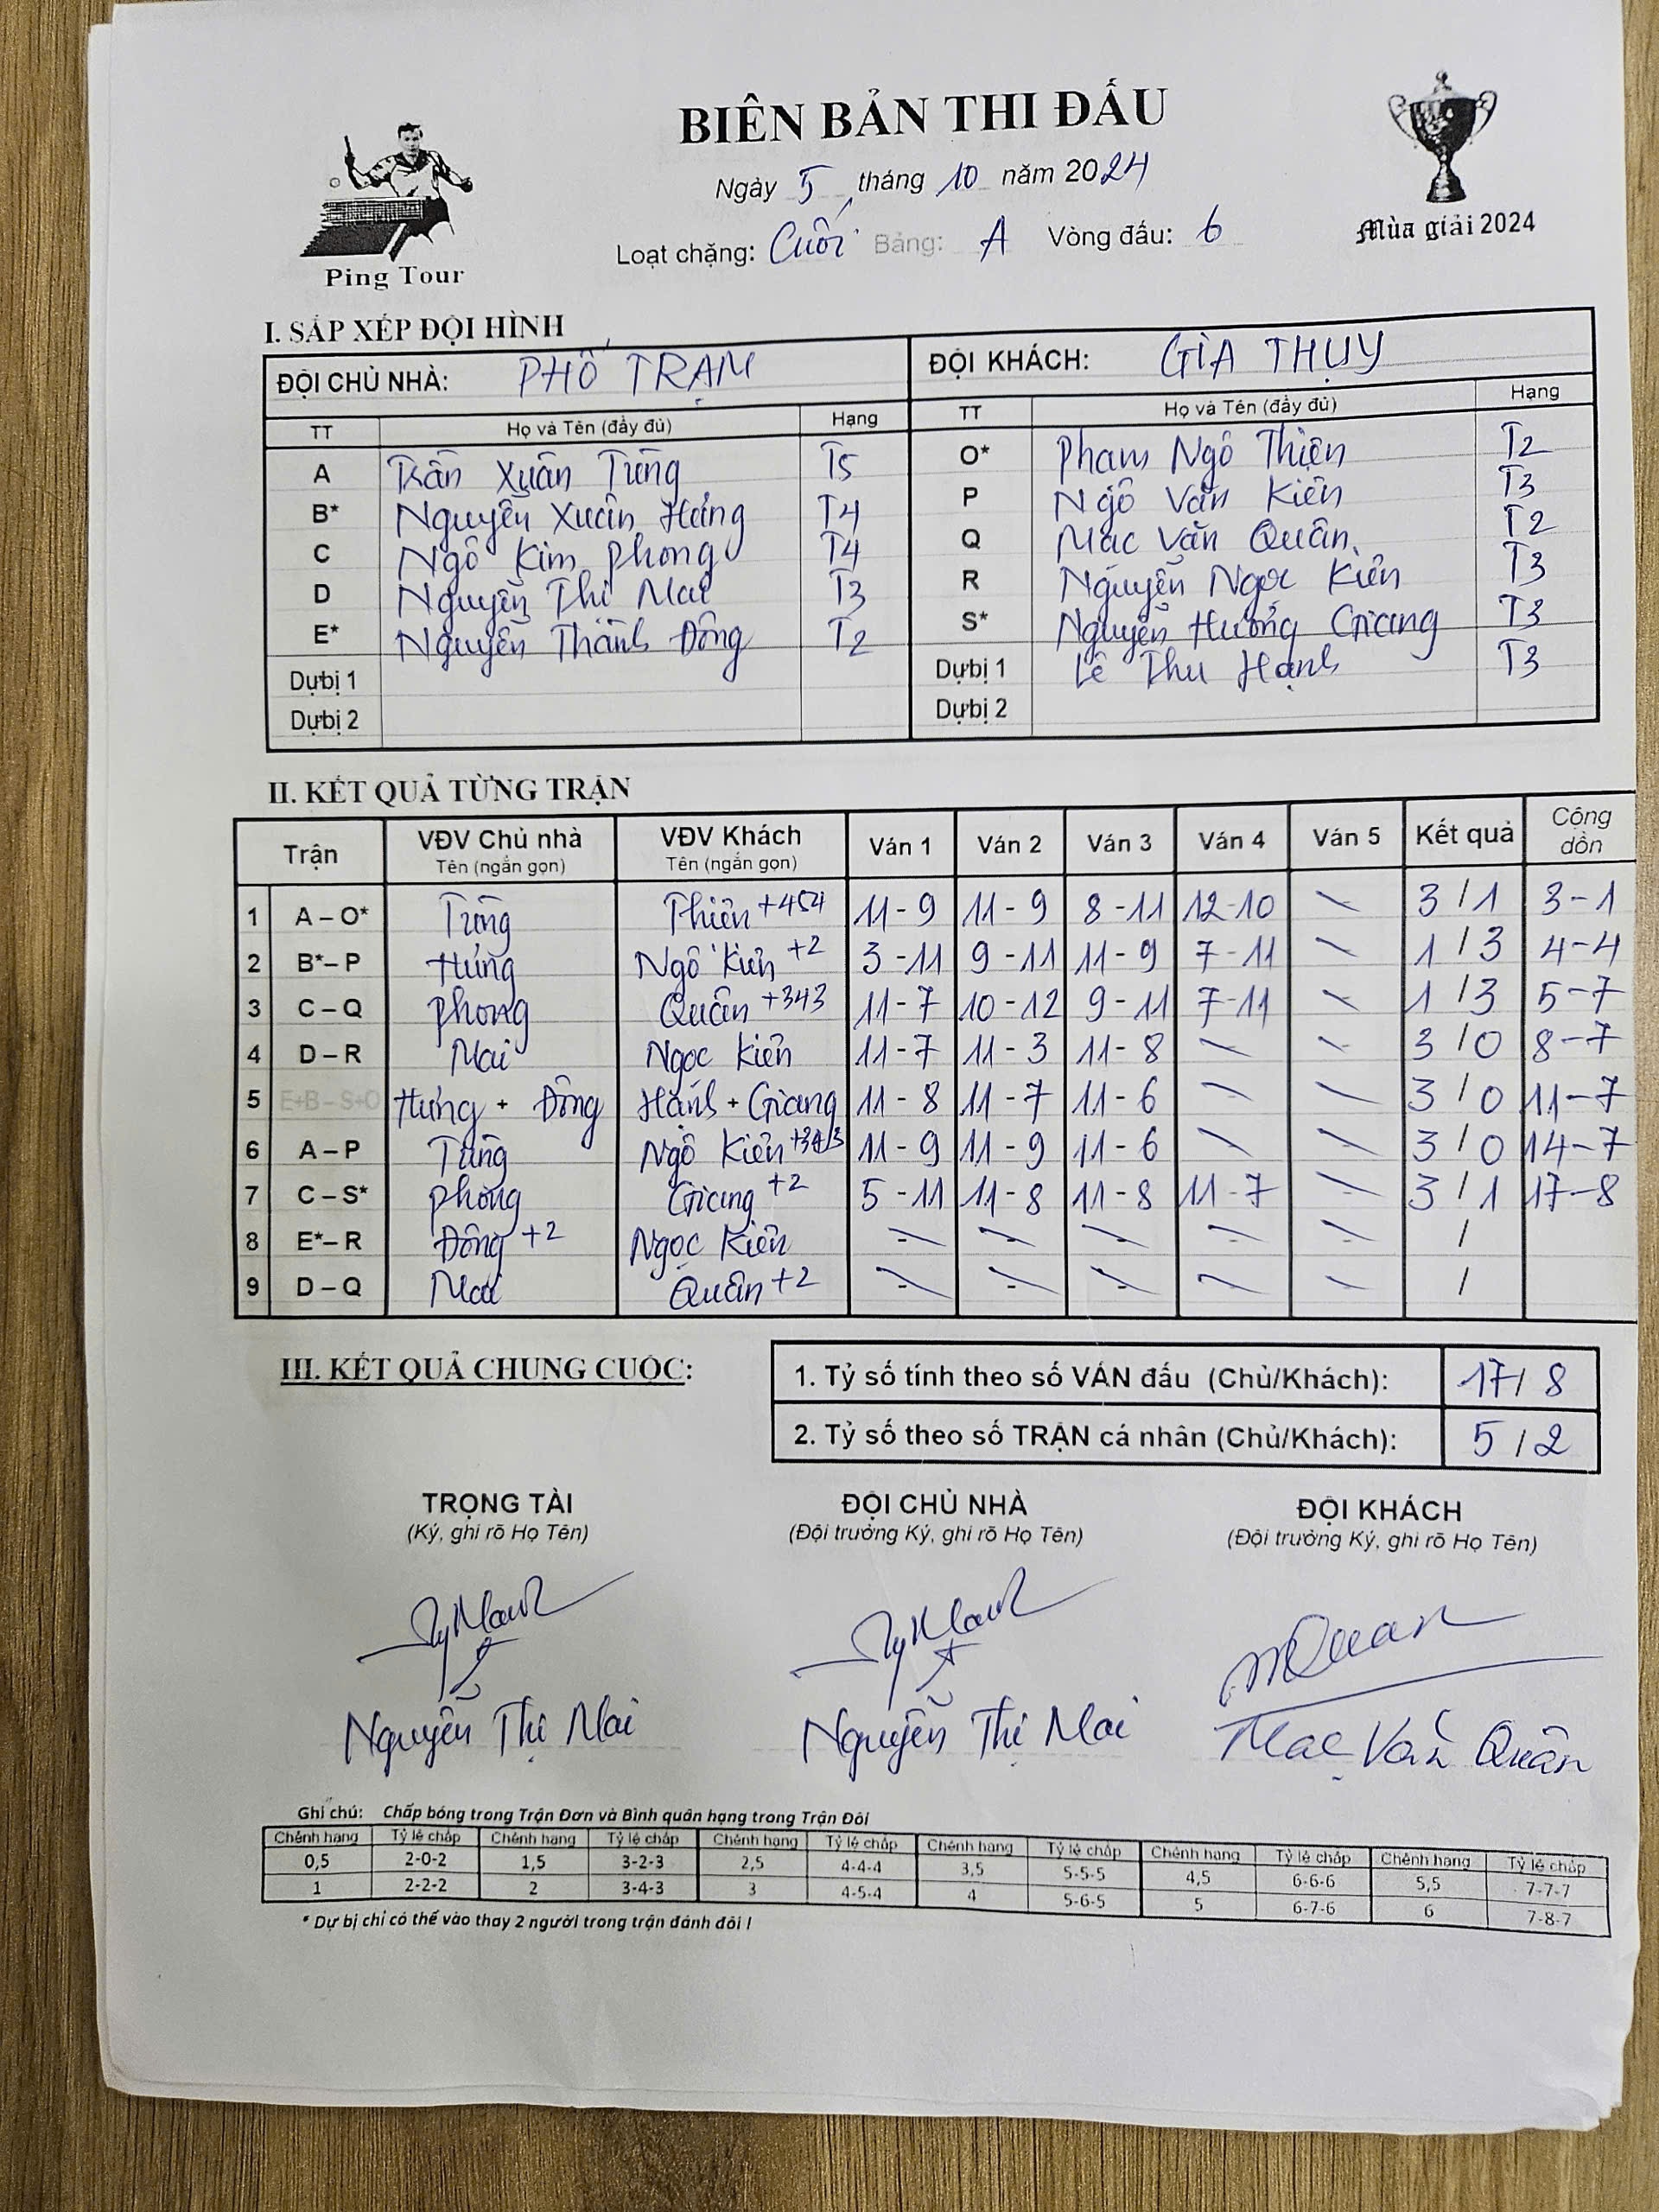 BIÊN BẢN THI ĐẤU
Ngày 5 tháng 10 năm 2024
Loạt chặng: Cuối Bảng: A Vòng đấu: 6
Ping Tour
Mùa giải 2024
I. SẮP XẾP ĐỘI HÌNH
ĐỘI CHỦ NHÀ: PHỐ TRẠM ĐỘI KHÁCH: GIA THỤY
TT Họ và Tên (đầy đủ) Hạng TT Họ và Tên (đầy đủ) Hạng
A Trần Xuân Tùng T5 O* Phạm Ngô Thiện T2
B* Nguyễn Xuân Hưng T4 P Ngô Văn Kiên T3
C Ngô Kim Phong T4 Q Mạc Văn Quân T2
D Nguyễn Thị Mai T3 R Nguyễn Ngọc Kiên T3
E* Nguyễn Thành Đông T2 S* Nguyễn Hương Giang T3
Dự bị 1 Dự bị 1 Lê Thu Hạnh T3
Dự bị 2 Dự bị 2
II. KẾT QUẢ TỪNG TRẬN
Trận VĐV Chủ nhà Tên (ngắn gọn) VĐV Khách Tên (ngắn gọn) Ván 1 Ván 2 Ván 3 Ván 4 Ván 5 Kết quả Cộng dồn
1 A – O* Tùng Thiện +454 11 - 9 11 - 9 8 - 11 12 - 10 \ 3 / 1 3 - 1
2 B* – P Hưng Ngô Kiên +2 3 - 11 9 - 11 11 - 9 7 - 11 \ 1 / 3 4 - 4
3 C – Q Phong Quân +343 11 - 7 10 - 12 9 - 11 7 - 11 \ 1 / 3 5 - 7
4 D – R Mai Ngọc Kiên 11 - 7 11 - 3 11 - 8 \ \ 3 / 0 8 - 7
5 E+B – S+O Hưng + Đông Hạnh + Giang 11 - 8 11 - 7 11 - 6 \ \ 3 / 0 11 - 7
6 A – P Tùng Ngô Kiên +343 11 - 9 11 - 9 11 - 6 \ \ 3 / 0 14 - 7
7 C – S* Phong Giang +2 5 - 11 11 - 8 11 - 8 11 - 7 \ 3 / 1 17 - 8
8 E* – R Đông +2 Ngọc Kiên \ \ \ \ \ /
9 D – Q Mai Quân +2 \ \ \ \ \ /
III. KẾT QUẢ CHUNG CUỘC:
1. Tỷ số tính theo số VÁN đấu (Chủ/Khách): 17 / 8
2. Tỷ số theo số TRẬN cá nhân (Chủ/Khách): 5 / 2
TRỌNG TÀI ĐỘI CHỦ NHÀ ĐỘI KHÁCH
(Ký, ghi rõ Họ Tên) (Đội trưởng Ký, ghi rõ Họ Tên) (Đội trưởng Ký, ghi rõ Họ Tên)
Nguyễn Thị Mai Nguyễn Thị Mai Mạc Văn Quân
Ghi chú: Chấp bóng trong Trận Đơn và Bình quân hạng trong Trận Đôi
Chênh hạng Tỷ lệ chấp Chênh hạng Tỷ lệ chấp Chênh hạng Tỷ lệ chấp Chênh hạng Tỷ lệ chấp Chênh hạng Tỷ lệ chấp Chênh hạng Tỷ lệ chấp
0,5 2-0-2 1,5 3-2-3 2,5 4-4-4 3,5 5-5-5 4,5 6-6-6 5,5 7-7-7
1 2-2-2 2 3-4-3 3 4-5-4 4 5-6-5 5 6-7-6 6 7-8-7
* Dự bị chỉ có thể vào thay 2 người trong trận đánh đôi !